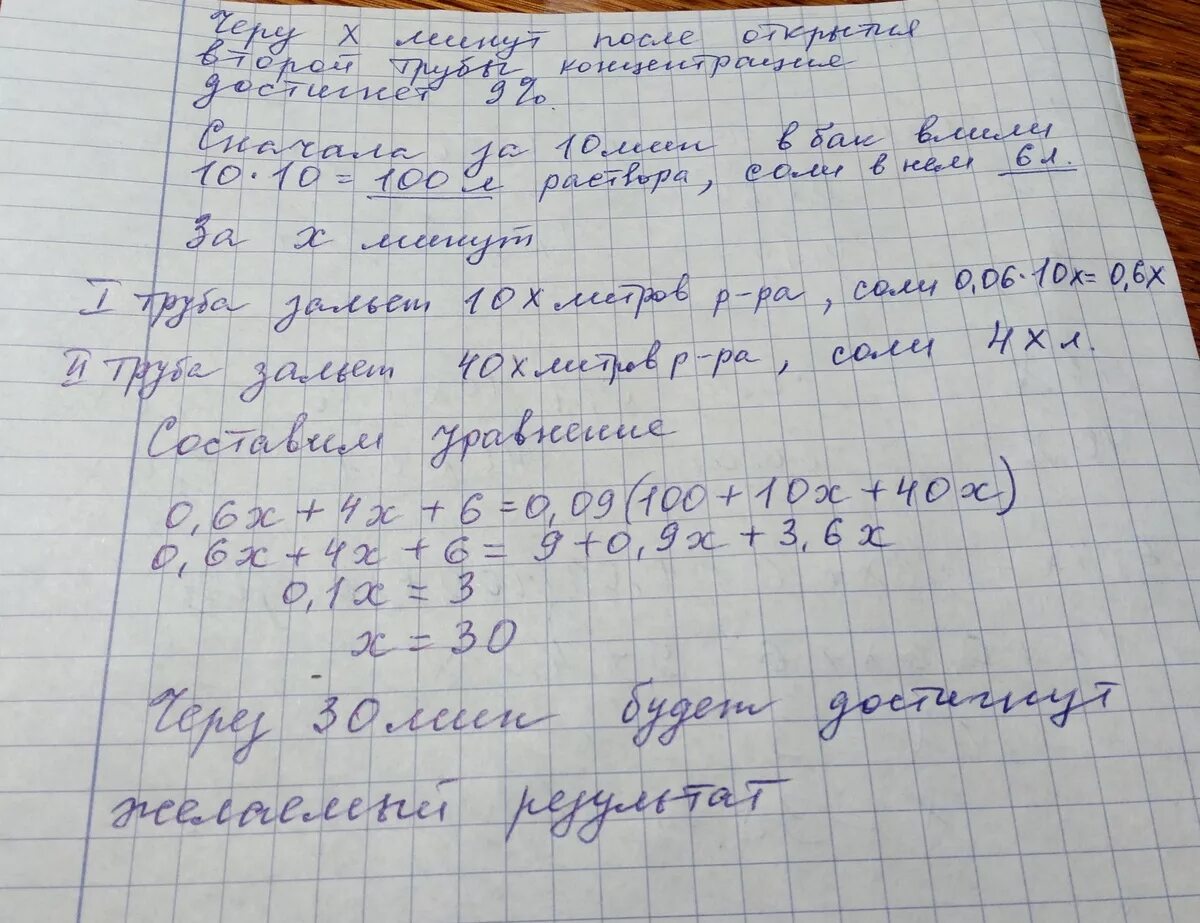 Через X минут после открытия
второй трубы концентрация
достигнет 9%.
Сначала за 10 мин в бак влили
10·10 = 100 л раствора, соли в нём 6 л.
За x минут
I труба зальёт 10x литров р-ра, соли 0,06·10x=0,6x
II труба зальёт 40x литров р-ра, соли 4x л.
Составим уравнение
0,6x + 4x + 6 = 0,09(100 + 10x + 40x)
0,6x + 4x + 6 = 9 + 0,9x + 3,6x
0,1x = 3
x = 30
Через 30 мин будет достигнут
желаемый результат